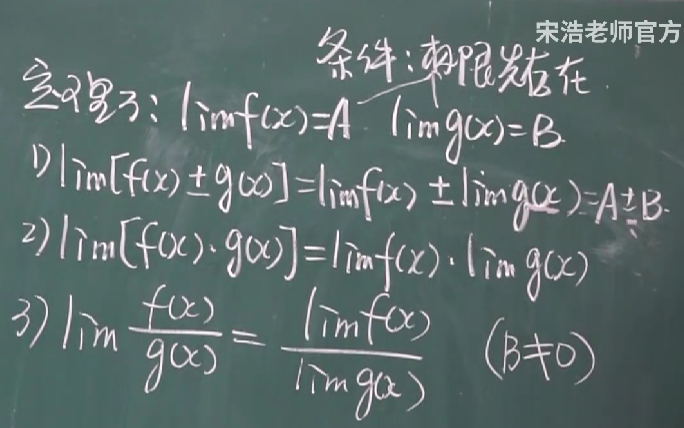 宋浩老师官方
条件:极限先存在
定理3: lim f(x)=A lim g(x)=B.
1) lim[f(x)±g(x)]=lim f(x) ± lim g(x)=A±B.
2) lim[f(x)·g(x)]=lim f(x)·lim g(x)
3) lim f(x)/g(x) = lim f(x)/lim g(x) (B≠0)